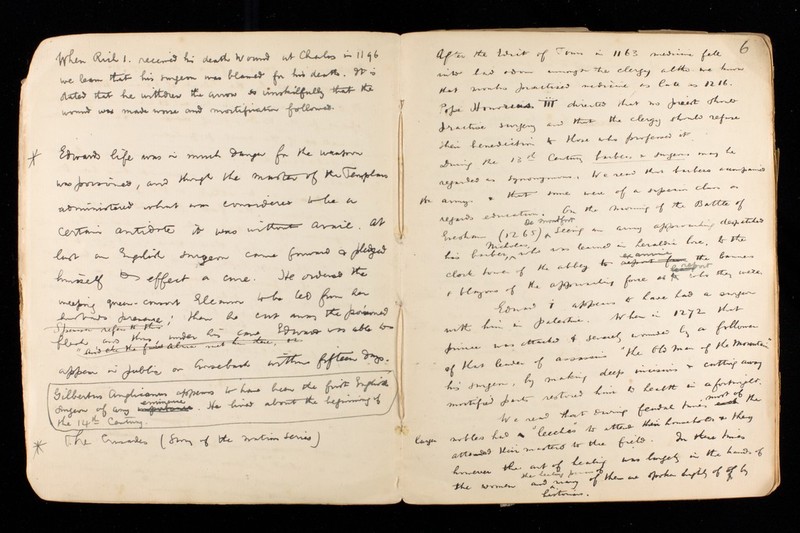 When Rich 1. received his death wound at Chalus in 1196
we learn that his surgeon was blamed for his death. It is
stated that he withdrew the arrow so unskilfully that the
wound was made worse and mortification followed.
* Edwards life was in much danger for the weapon
was poisoned, and though the master of the Templars
administered what was considered to be a
certain antidote it was without avail. At
last an English surgeon came forward & pledged
himself to effect a cure. He ordered the
weeping queen-consort Eleanor to be led from her
husbands presence; then he cut away the poisoned
flesh and thus under his care Edward was able to
appear in public on horseback within fifteen days.
Gilbertus Anglicanus appears to have been the first English
surgeon of any eminence. He lived about the beginning of
the 14th Century.
* The Crusades (Story of the Nations Series)
6
After the Edict of Tours in 1163 medicine fell
into bad odour amongst the clergy altho we know
that monks practised medicine as late as 1216.
Pope Honorius III directed that no priest should
practise surgery and that the clergy should refuse
their benediction to those who professed it.
During the 13th Century barbers & surgeons may be
regarded as synonymous. We read that barbers accompanied
the army & that some were of a superior class as
regards education. On the morning of the Battle of
De Montfort
Evesham (1265) seeing an army approaching despatched
his barber, Nicholas, who was learned in heraldic lore, to the
clock tower of the abbey to examine the banners
& blazons of the approaching force & report who they were.
Edward I appears to have had a surgeon
with him in Palestine. When in 1272 that
prince was attacked & severely wounded by a follower
of that leader of assassins "the Old Man of the Mountain"
his surgeon, by making deep incisions & cutting away
mortified parts restored him to health in a fortnight.
We read that during feudal times most of the
larger nobles had "leeches" to attend their households & they
attended their masters to the field. In these times
however the art of healing was largely in the hands of
the women and many of them are spoken highly of by
historians.